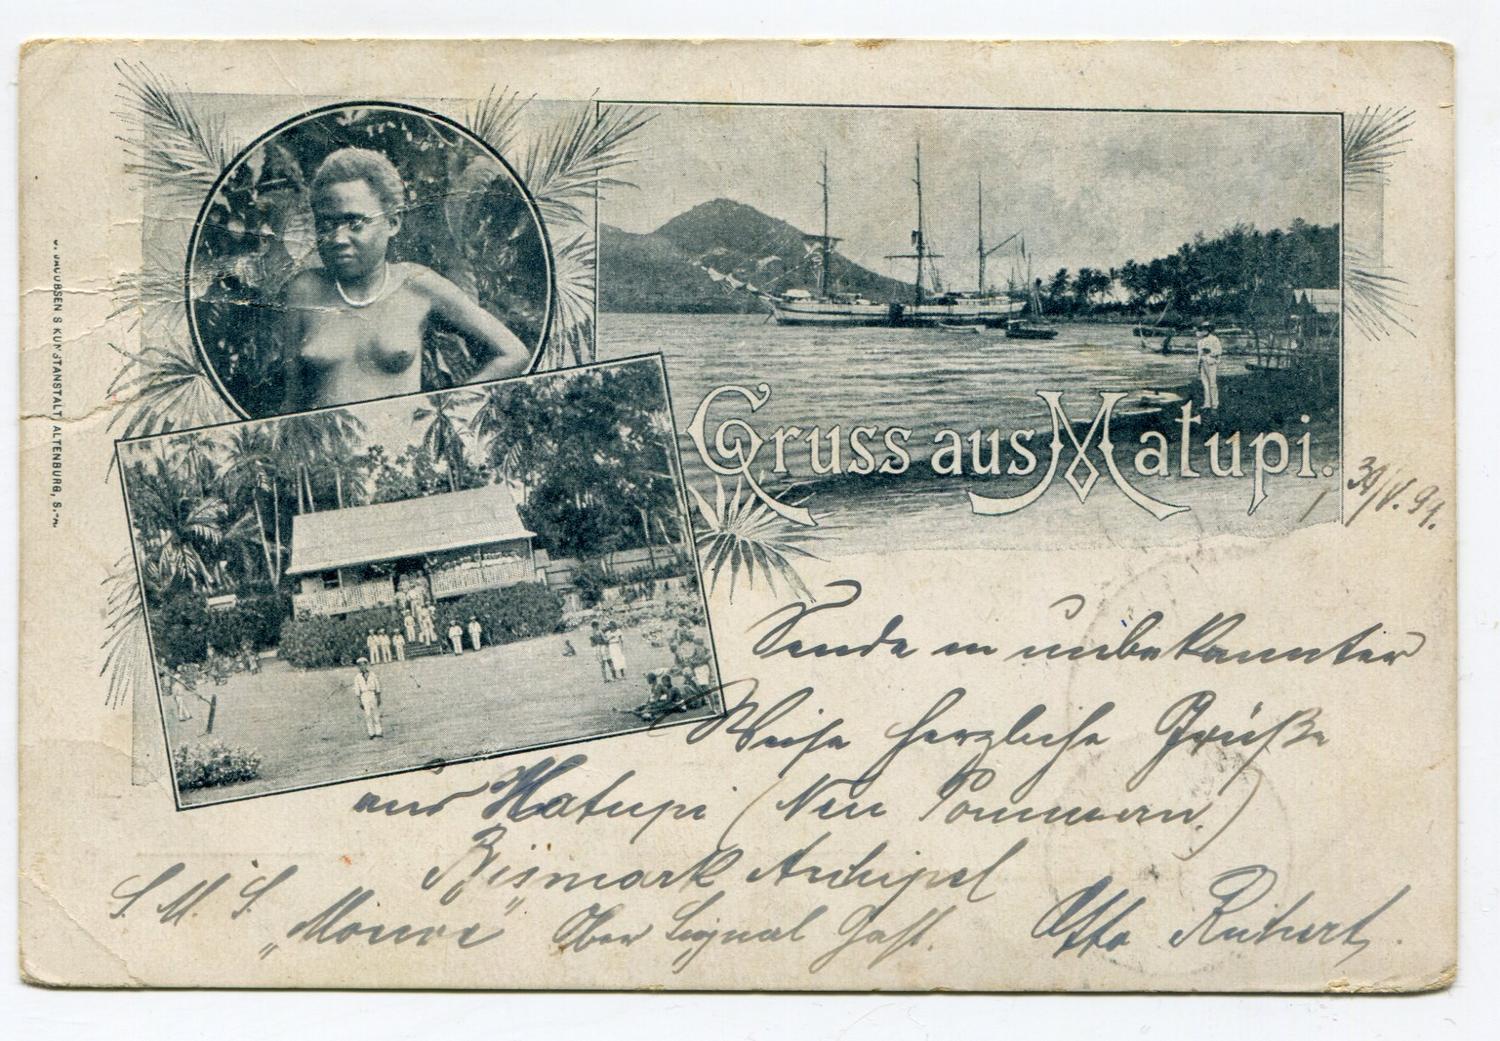 Gruss aus Matupi.
30/V. 99.
Sende in unbekannter
Weise herzliche Grüße
aus Matupi (Neu Pommern.)
Bismark Archipel
S. M. S. „Möwe" Ober Signal Gast. Otto
JACOBSEN S KUNSTANSTALT ALTENBURG, S.-A.